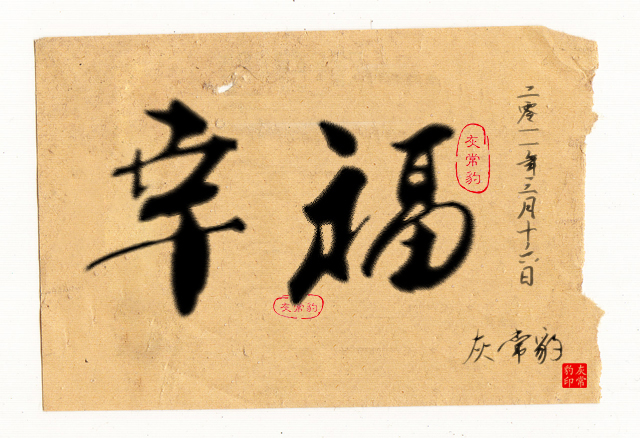 幸福
灰常豹
灰常豹
二零一一年三月十六日
灰常豹
灰常
豹印